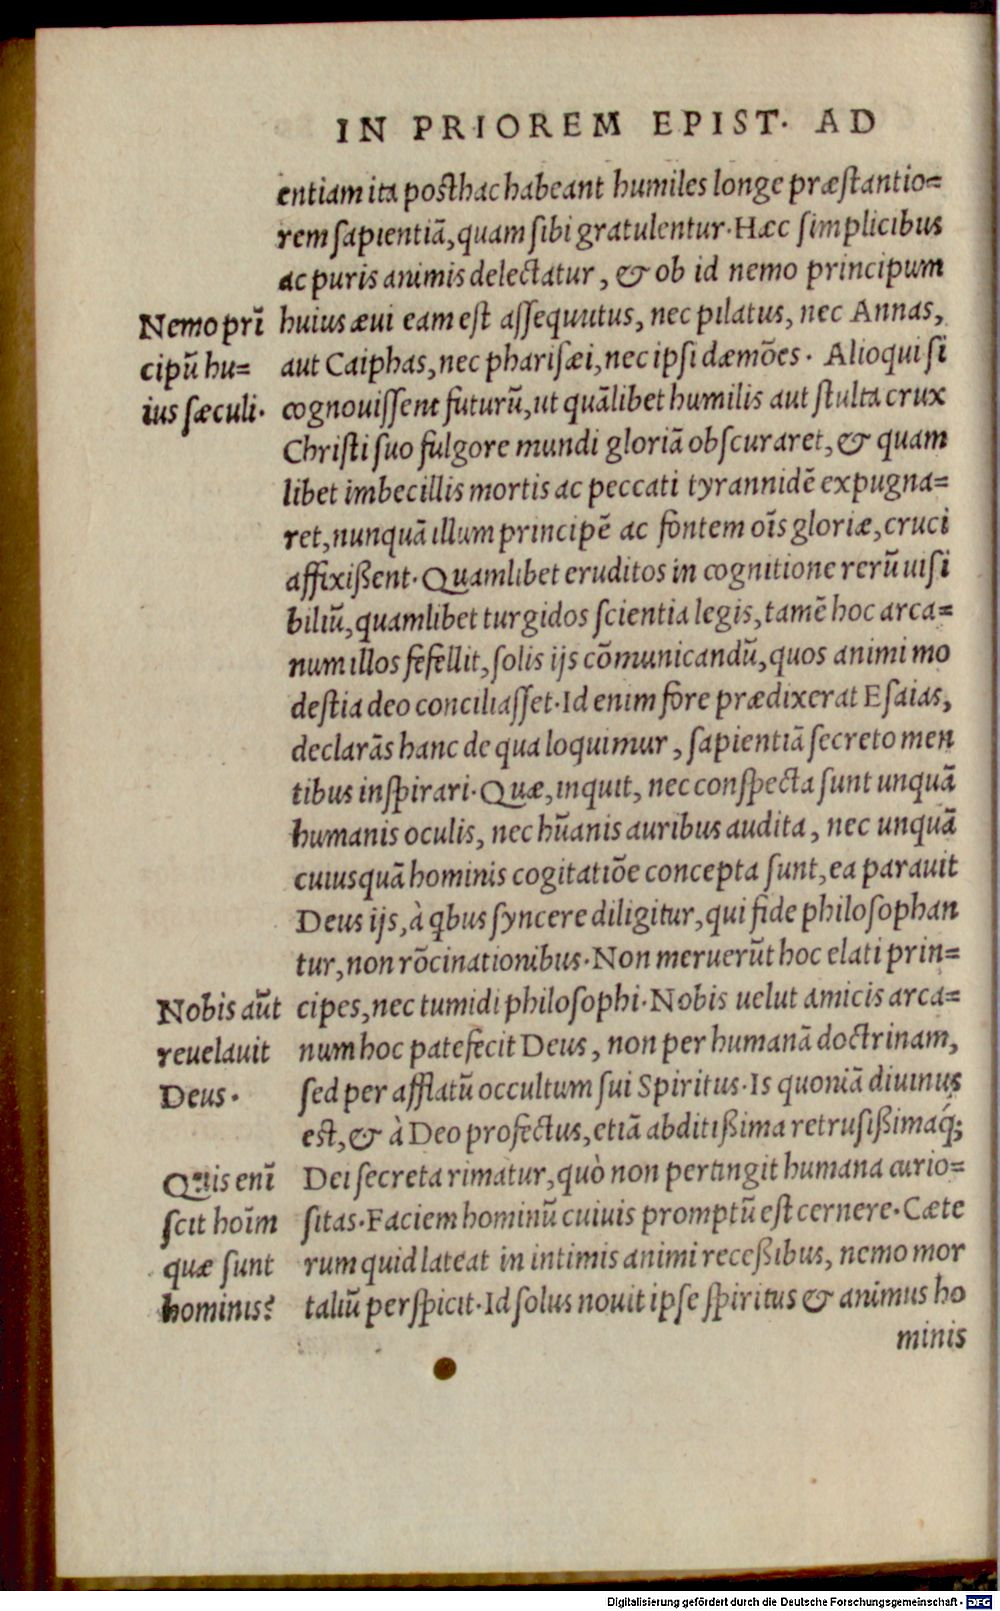 IN PRIOREM EPIST. AD
entiam ita posthac habeant humiles longe præſtantio=
rem ſapientiã, quam ſibi gratulentur. Hæc ſimplicibus
ac puris animis delectatur, & ob id nemo principum
huius æui eam eſt aſſequutus, nec pilatus, nec Annas,
aut Caiphas, nec phariſæi, nec ipſi dæmões. Alioqui ſi
cognouiſſent futurũ, ut quãlibet humilis aut ſtulta crux
Chriſti ſuo fulgore mundi gloriã obſcuraret, & quam
libet imbecillis mortis ac peccati tyrannidẽ expugna=
ret, nunquã illum principẽ ac fontem oĩs gloriæ, cruci
affixißent. Quamlibet eruditos in cognitione rerũ uiſi
biliũ, quamlibet turgidos ſcientia legis, tamẽ hoc arca=
num illos fefellit, ſolis ijs cõmunicandũ, quos animi mo
deſtia deo conciliaſſet. Id enim fore prædixerat Eſaias,
declarãs hanc de qua loquimur, ſapientiã ſecreto men
tibus inſpirari. Quæ, inquit, nec conſpecta ſunt unquã
humanis oculis, nec hũanis auribus audita, nec unquã
cuiusquã hominis cogitatiõe concepta ſunt, ea parauit
Deus ijs, à qbus ſyncere diligitur, qui fide philoſophan
tur, non rõcinationibus. Non meruerũt hoc elati prin=
cipes, nec tumidi philoſophi. Nobis uelut amicis arca=
num hoc patefecit Deus, non per humanã doctrinam,
ſed per afflatũ occultum ſui Spiritus. Is quoniã diuinus
eſt, & à Deo profectus, etiã abditißima retruſißimaq́;
Dei ſecreta rimatur, quò non pertingit humana curio=
ſitas. Faciem hominũ cuiuis promptũ eſt cernere. Cæte
rum quid lateat in intimis animi receßibus, nemo mor
taliũ perſpicit. Id ſolus nouit ipſe ſpiritus & animus ho
minis
Nemo prĩ
cipũ hu=
ius ſæculi.
Nobis aũt
reuelauit
Deus.
Quis enĩ
ſcit hoĩm
quæ ſunt
hominis?
Digitalisierung gefördert durch die Deutsche Forschungsgemeinschaft - DFG